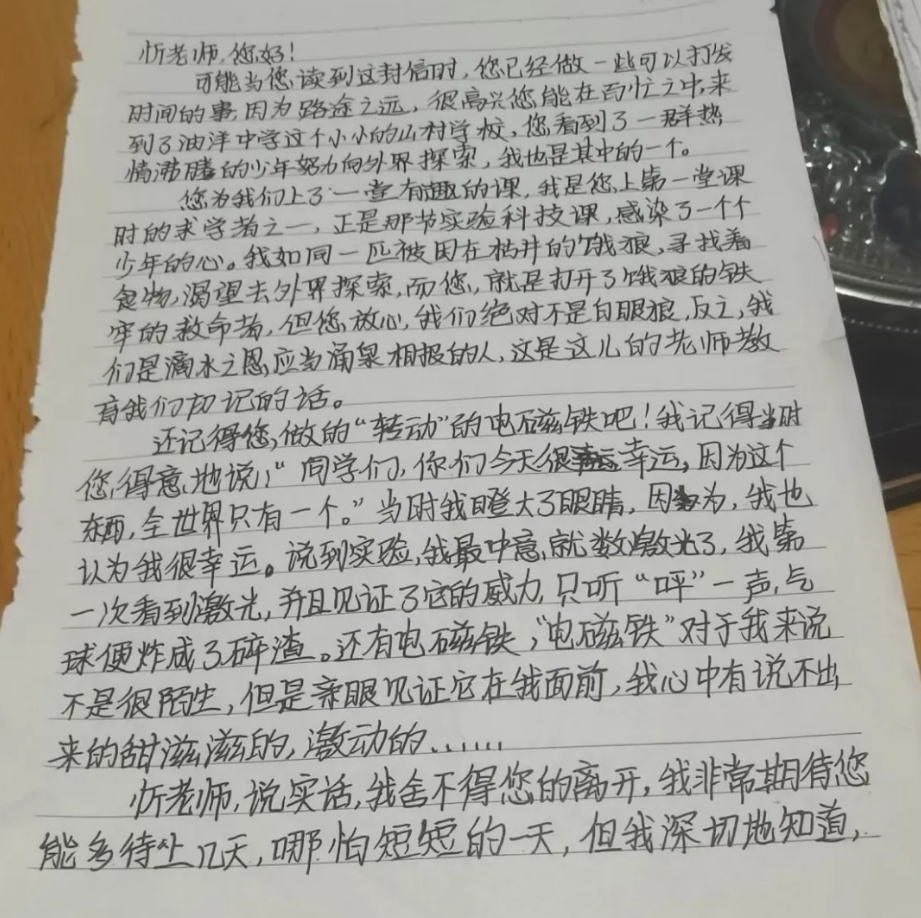 忻老师,您好!
可能当您读到这封信时,您已经做一些可以打发
时间的事,因为路途之远,很高兴您能在百忙之中,来
到了油洋中学这个小小的山村学校,您看到了一群热
情沸腾的少年努力向外界探索,我也是其中的一个。
您为我们上了一堂有趣的课,我是您上第一堂课
时的求学者之一,正是那节实验科技课,感染了一个个
少年的心。我如同一匹被困在枯井的饿狼,寻找着
食物,渴望去外界探索,而您,就是打开了饿狼的铁
牢的救命者,但您放心,我们绝对不是白眼狼,反之,我
们是滴水之恩,应当涌泉相报的人,这是这儿的老师教
育我们切记的话。
还记得您,做的“转动”的电磁铁吧!我记得当时
您,得意地说;“同学们,你们今天很幸运,因为这个
东西,全世界只有一个。”当时我瞪大了眼睛,因为,我也
认为我很幸运。说到实验,我最中意,就数激光了,我第
一次看到激光,并且见证了它的威力,只听“呯”一声,气
球便炸成了碎渣。还有电磁铁,“电磁铁”对于我来说
不是很陌生,但是亲眼见证它在我面前,我心中有说不出
来的甜滋滋的,激动的......
忻老师,说实话,我舍不得您的离开,我非常期待您
能多待上几天,哪怕短短的一天,但我深切地知道,